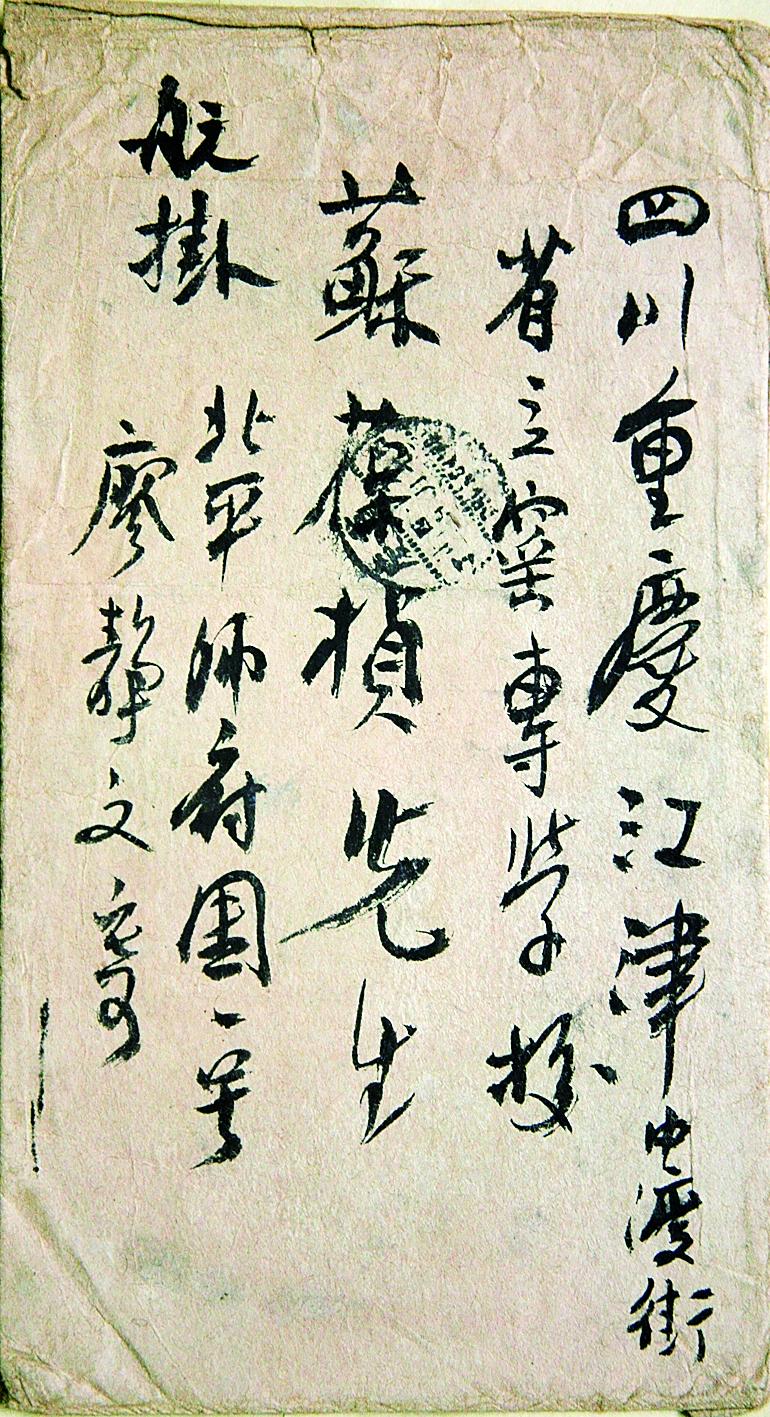 四川重慶江津中渡街
省立窯專學校
蘇葆楨先生
航掛
北平師府園一号
廖靜文寄